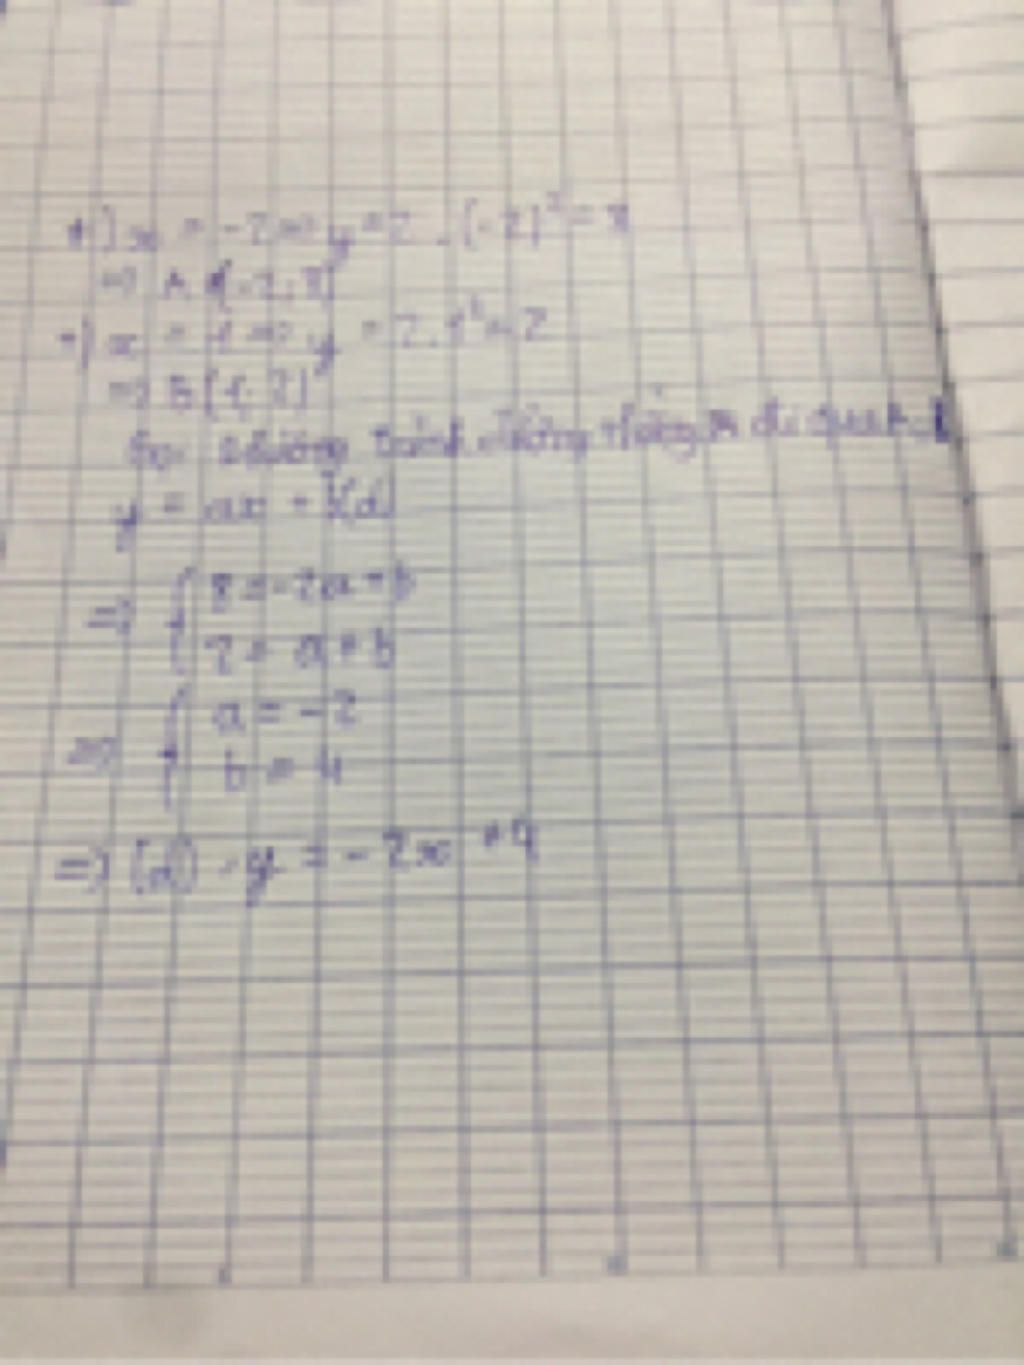 +) x = -2 => y = 2.(-2)² = 8
=> A (-2; 8)
+) x = 1 => y = 2.1² = 2
=> B (1; 2)
Gọi trình đường thẳng đi qua
y = ax + b (d)
=> { 8 = -2a + b
2 = a + b
=> { a = -2
b = 4
=> (d) y = -2x + 4